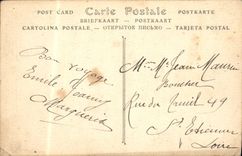 POST CARD Carte Postale POSTKARTE
BRIEFKAART — POSTKAART
CARTOLINA POSTALE. — ОТКРЫТОЕ ПИСЬМО — TARJETA POSTAL
Bon voyage
Emile Jeanny
Marguerite
Mme Mr Jean Maurin
Boucher
Rue du Treuil 49
St Etienne
Loire